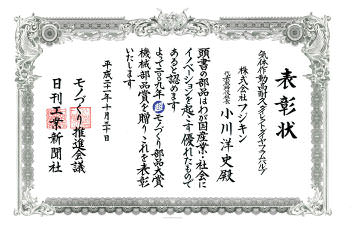 表彰状
気体作動高耐久ダイレクトダイヤフラムバルブ
株式会社フジキン
代表取締役社長
小川洋史殿
頭書の部品はわが国産業・社会に
イノベーションを起こす優れたもので
あると認めます
よって二〇〇九年 モノづくり部品大賞
機械部品賞を贈りこれを表彰
いたします
平成二十一年十月三十日
モノづくり推進会議
日刊工業新聞社